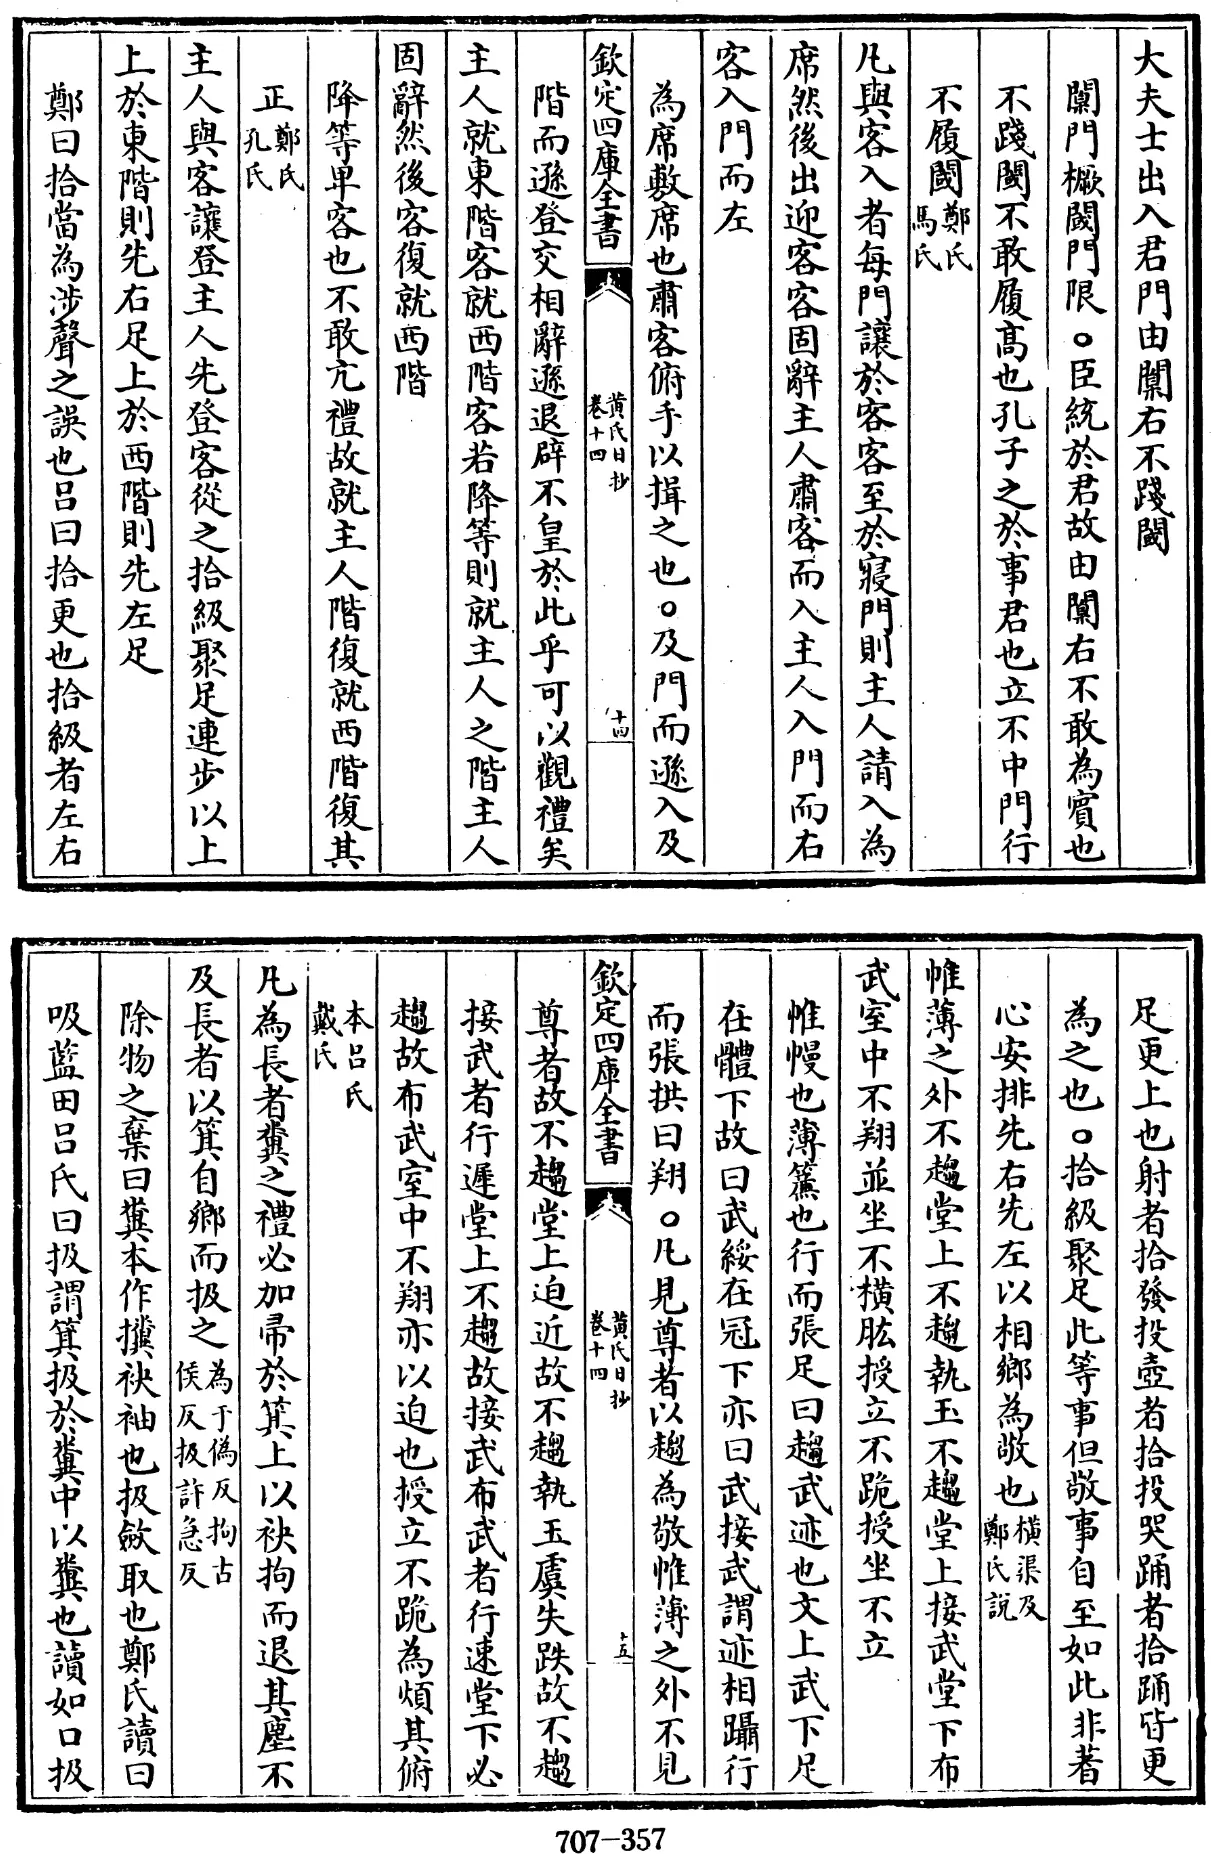 大夫士出入君門由闑右不踐閾
闑門橛閾門限○臣統於君故由闑右不敢為賓也
不踐閾不敢履髙也孔子之於事君也立不中門行
不履閾鄭氏馬氏
凡與客入者每門讓於客客至於寢門則主人請入為
席然後出迎客客固辭主人肅客而入主人入門而右
客入門而左
為席敷席也肅客俯手以揖之也○及門而遜入及
欽定四庫全書
黄氏日抄
卷十四
十四
階而遜登交相辭遜退辟不皇於此乎可以觀禮矣
主人就東階客就西階客若降等則就主人之階主人
固辭然後客復就西階
降等卑客也不敢亢禮故就主人階復就西階復其
正鄭氏孔氏
主人與客讓登主人先登客從之拾級聚足連步以上
上於東階則先右足上於西階則先左足
鄭曰拾當為涉聲之誤也吕曰拾更也拾級者左右
足更上也射者拾發投壺者拾投哭踊者拾踊皆更
為之也○拾級聚足此等事但敬事自至如此非著
心安排先右先左以相鄉為敬也橫渠及鄭氏説
帷薄之外不趨堂上不趨執玉不趨堂上接武堂下布
武室中不翔並坐不橫肱授立不跪授坐不立
帷幔也薄簾也行而張足曰趨武迹也文上武下足
在體下故曰武綏在冠下亦曰武接武謂迹相躡行
而張拱曰翔○凡見尊者以趨為敬帷薄之外不見
欽定四庫全書
黄氏日抄
卷十四
十五
尊者故不趨堂上迫近故不趨執玉虞失跌故不趨
接武者行遲堂上不趨故接武布武者行速堂下必
趨故布武室中不翔亦以迫也授立不跪為煩其俯
本吕氏戴氏
凡為長者糞之禮必加帚於箕上以袂拘而退其塵不
及長者以箕自鄉而扱之為于偽反拘古侯反扱許急反
除物之棄曰糞本作㩓袂袖也扱斂取也鄭氏讀曰
吸藍田吕氏曰扱謂箕扱於糞中以糞也讀如口扱
707-357